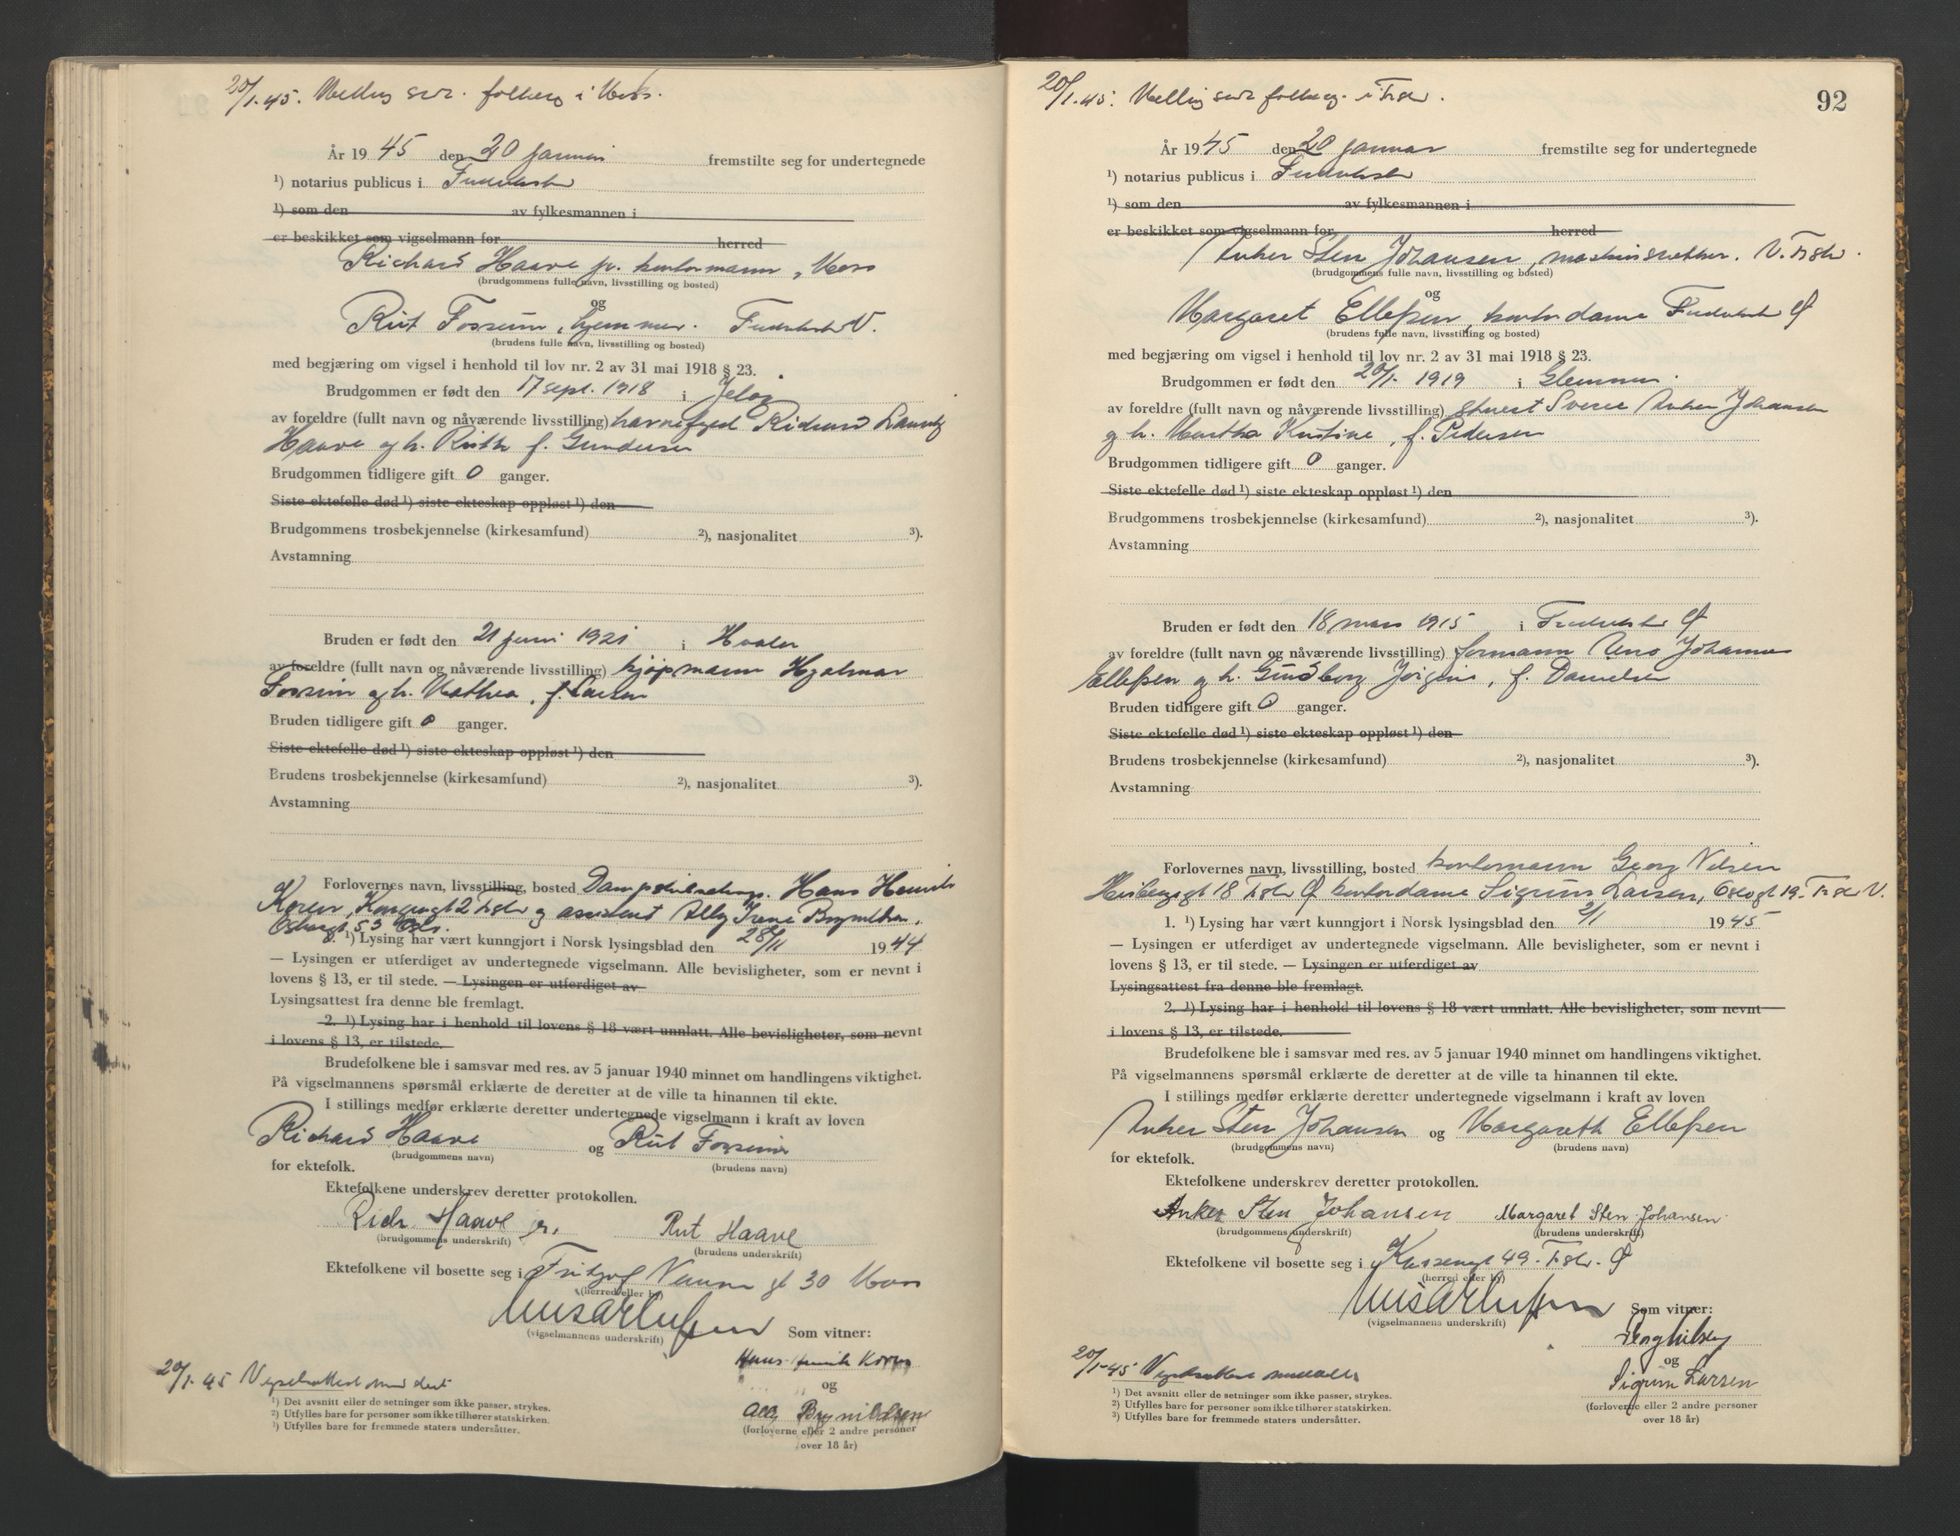 20/1.45. Melding sdr. folkereg i Moss.
År 1945 den 20 januar fremstilte seg for undertegnede
¹) notarius publicus i Fredrikstad
¹) som den av fylkesmannen i
er beskikket som vigselmann for herred
Richard Haave jr. kontormann, Moss
(brudgommens fulle navn, livsstilling og bosted)
og
Rut Fossum, hjemmev. Fredrikstad V.
(brudens fulle navn, livsstilling og bosted)
med begjæring om vigsel i henhold til lov nr. 2 av 31 mai 1918 § 23.
Brudgommen er født den 17 sept. 1918 i Jeløy
av foreldre (fullt navn og nåværende livsstilling) havnefoged Richard Lauritz
Haave og h. Ruth f. Gundersen
Brudgommen tidligere gift 0 ganger.
Siste ektefelle død ¹) siste ekteskap oppløst ¹) den
Brudgommens trosbekjennelse (kirkesamfund) ²), nasjonalitet ³).
Avstamning
Bruden er født den 21 juni 1921 i Hvaler
av foreldre (fullt navn og nåværende livsstilling) kjøpmann Hjalmar
Fossum og h. Mathea, f. Larsen
Bruden tidligere gift 0 ganger.
Siste ektefelle død ¹) siste ekteskap oppløst ¹) den
Brudens trosbekjennelse (kirkesamfund) ²), nasjonalitet ³).
Avstamning
Forlovernes navn, livsstilling, bosted Hans Henrik
Koren, Kongensgt 2 Fstr og assistent Ally Irene Brynildsen.
53 Oslo.
1. ¹) Lysing har vært kunngjort i Norsk lysingsblad den 28/11 1944
— Lysingen er utferdiget av undertegnede vigselmann. Alle bevisligheter, som er nevnt i
lovens § 13, er til stede. — Lysingen er utferdiget av
Lysingsattest fra denne ble fremlagt.
2. ¹) Lysing har i henhold til lovens § 18 vært unnlatt. Alle bevisligheter, som nevnt
i lovens § 13, er tilstede.
Brudefolkene ble i samsvar med res. av 5 januar 1940 minnet om handlingens viktighet.
På vigselmannens spørsmål erklærte de deretter at de ville ta hinannen til ekte.
I stillings medfør erklærte deretter undertegnede vigselmann i kraft av loven
Richard Haave og Rut Fossum
(brudgommens navn) (brudens navn)
for ektefolk.
Ektefolkene underskrev deretter protokollen.
Rich. Haave jr. Rut Haave
(brudgommens underskrift) (brudens underskrift)
Ektefolkene vil bosette seg i Fritjof Nansens gt 30 Moss
(herred eller by)
(vigselmannens underskrift) Som vitner:
Hans Henrik Koren
20/1.45 Vigselsattest og
¹) Det avsnitt eller de setninger som ikke passer, strykes.
²) Utfylles bare for personer som ikke tilhører statskirken.
³) Utfylles bare for fremmede staters undersåtter.
Ally Brynildsen
(forloverne eller 2 andre personer
over 18 år)
92
20/1.45. Melding sdr folkereg. i Fstr.
År 1945 den 20 januar fremstilte seg for undertegnede
¹) notarius publicus i Fredrikstad
¹) som den av fylkesmannen i
er beskikket som vigselmann for herred
Anker Sten Johansen, maskinsnekker. V. Fstr.
(brudgommens fulle navn, livsstilling og bosted)
og
Margaret Ellefsen, kontordame Fredrikstad Ø
(brudens fulle navn, livsstilling og bosted)
med begjæring om vigsel i henhold til lov nr. 2 av 31 mai 1918 § 23.
Brudgommen er født den 20/1. 1919 i Glemmen.
av foreldre (fullt navn og nåværende livsstilling) Sverre Anker Johansen
og h. Martha Kristine, f. Pedersen
Brudgommen tidligere gift 0 ganger.
Siste ektefelle død ¹) siste ekteskap oppløst ¹) den
Brudgommens trosbekjennelse (kirkesamfund) ²), nasjonalitet ³).
Avstamning
Bruden er født den 18 mars 1915 i Fredrikstad Ø
av foreldre (fullt navn og nåværende livsstilling) formann Johannes
Ellefsen og h. Gudborg Jørgine, f. Danielsen
Bruden tidligere gift 0 ganger.
Siste ektefelle død ¹) siste ekteskap oppløst ¹) den
Brudens trosbekjennelse (kirkesamfund) ²), nasjonalitet ³).
Avstamning
Forlovernes navn, livsstilling, bosted kontormann Georg Nilsen
18 Fstr Ø kontordame Sigrun Larsen, Oslogt 19. Fstr V.
1. ¹) Lysing har vært kunngjort i Norsk lysingsblad den 2/1 1945
— Lysingen er utferdiget av undertegnede vigselmann. Alle bevisligheter, som er nevnt i
lovens § 13, er til stede. — Lysingen er utferdiget av
Lysingsattest fra denne ble fremlagt.
2. ¹) Lysing har i henhold til lovens § 18 vært unnlatt. Alle bevisligheter, som nevnt
i lovens § 13, er tilstede.
Brudefolkene ble i samsvar med res. av 5 januar 1940 minnet om handlingens viktighet.
På vigselmannens spørsmål erklærte de deretter at de ville ta hinannen til ekte.
I stillings medfør erklærte deretter undertegnede vigselmann i kraft av loven
Anker Sten Johansen og Margareth Ellefsen
(brudgommens navn) (brudens navn)
for ektefolk.
Ektefolkene underskrev deretter protokollen.
Anker Sten Johansen Margaret Sten Johansen.
(brudgommens underskrift) (brudens underskrift)
Ektefolkene vil bosette seg i 49. Fstr. Ø
(herred eller by)
(vigselmannens underskrift) Som vitner:
Georg Nilsen
og
20/1-45 Vigselsattest
Sigrun Larsen
¹) Det avsnitt eller de setninger som ikke passer, strykes.
²) Utfylles bare for personer som ikke tilhører statskirken.
³) Utfylles bare for fremmede staters undersåtter.
(forloverne eller 2 andre personer
over 18 år)